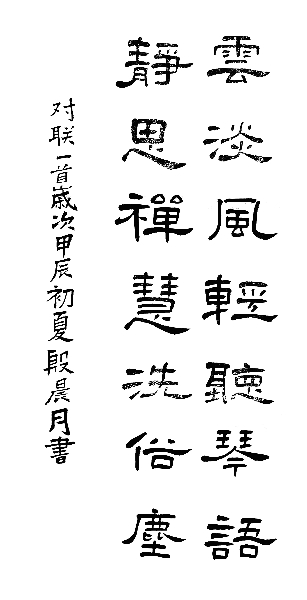 雲淡風輕聽琴語
靜思禪慧洗俗塵
对联一首歲次甲辰初夏殷晨月書